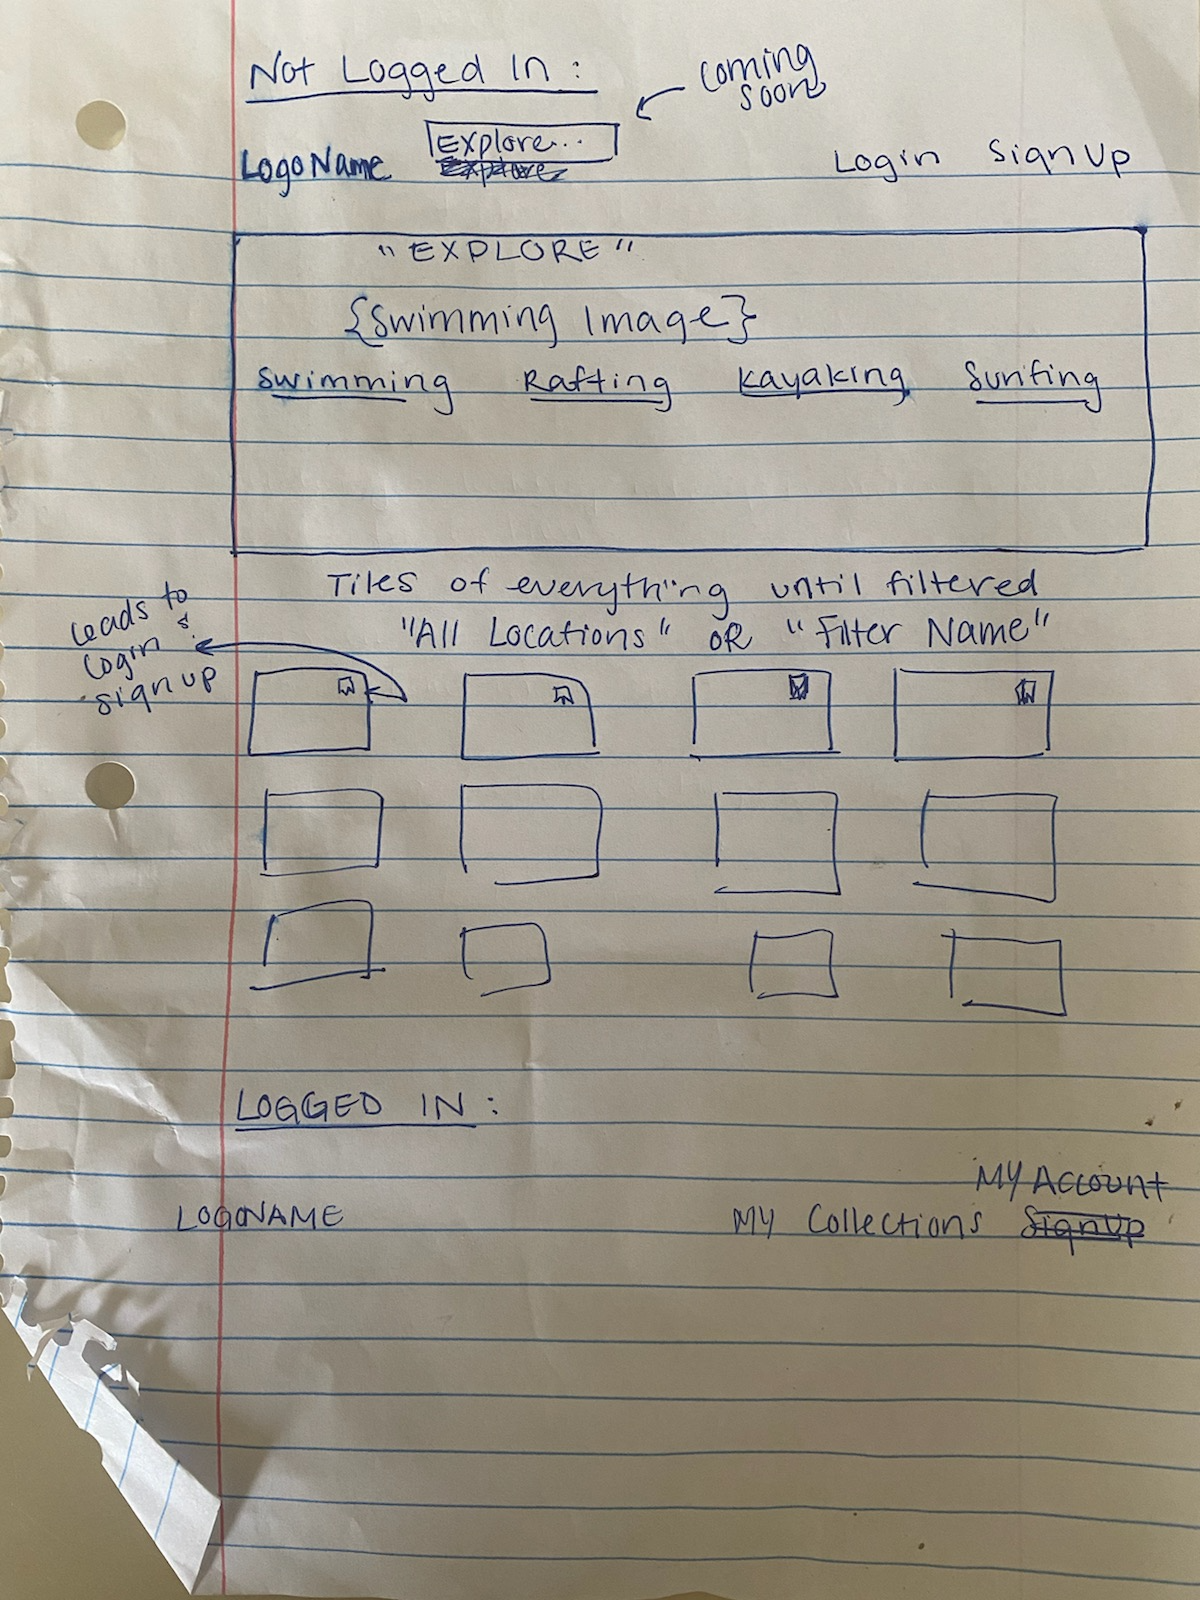 Not Logged In :
coming
soon
Explore...
LogoName Explore
Login Sign Up
"EXPLORE"
{Swimming Image}
Swimming Rafting Kayaking Surfing
Tiles of everything until filtered
"All Locations" OR "Filter Name"
Leads to
login &
sign up
LOGGED IN :
MY Account
LOGONAME MY Collections SignUp